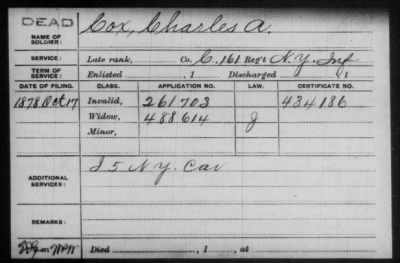 DEAD
NAME OF SOLDIER: Cox, Charles A.
SERVICE: Late rank, Co. C, 161 Reg't N.Y. Inf
TERM OF SERVICE: Enlisted , 1 Discharged , 1
DATE OF FILING. CLASS. APPLICATION NO. LAW. CERTIFICATE NO.
1878 Oct 17 Invalid, 261703 434186
Widow, 488614
Minor,
ADDITIONAL SERVICES: 5 N.Y. Cav
REMARKS:
Died , 1 , at